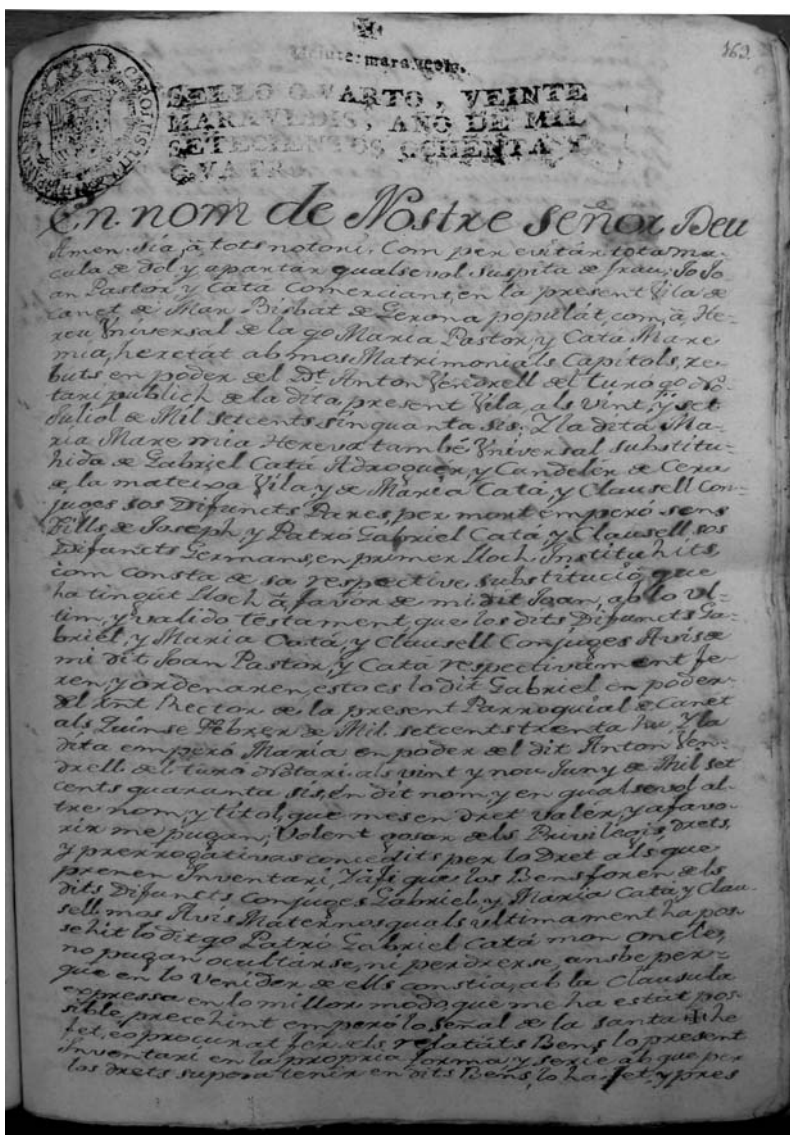 Veinte maravedis.
163.
SELLO QVARTO, VEINTE
MARAVEDIS, AÑO DE MIL
SETECIENTOS OCHENTA Y
QVATRO
En nom de Nostre Señor Deu
Amen. Sia, á tots notori. Com per evitár tota ma-
cula de dol y apartar qualsevol suspita de frau; Jo Jo-
an Pastor y Catá Comerciant, en la present Vila de
Canet de Mar Bisbat de Gerona populát, com, á, He-
reu Vniversal de la qo Maria Pastor, y Catá, Mare
mia, heretát ab mos Matrimonials Capitols, re-
buts en poder del Dt. Anton Vendrell del turó qo No-
tari publich de la dita, present Vila, als vint, y set
Juliol de Mil setcents sinquanta sis; Y la dita Ma-
ria Mare mia Hereva també Vniversal substitu-
hida de Gabriel Catá Adroguer, y Candeler de Cera
de la mateixa Vila, y de Maria Catá, y Clausell Con-
juges sos Difuncts Pares, per mort emperó sens
Fills de Joseph, y Patró Gabriel Catá y Clausell, sos
Difuncts Germans, en primer Lloch Instituhits,
com consta de sa respective, substitució, que
ha tingút Lloch á, favór de mi dit Joan, ab lo vl-
tim, y valido testament, que los dits Difuncts Ga-
briel, y Maria Catá, y Clausell Conjuges Avis de
mi dit Joan Pastor, y Catá respectivament fe-
ren, y ordenaren, esto es lo dit Gabriel en poder
del Rector de la present Parroquial de Canet
als Quinse Febrer de Mil setcents trenta hu, Y la
dita emperó Maria en poder del dit Anton Ven-
drell del turó Notari als vint y nou Juny de Mil set
cents quaranta sis, en dit nom, y en qualsevol al-
tre nom, y titol, que mes en dret valér, y afavo-
rir me pugan; Volent gosar dels Privilegis, drets,
y prerrogativas concedits per lo Dret als que
prenen Inventari, Y á fi que los Bens foren dels
dits Difuncts Conjuges Gabriel, y Maria Catá, y Clau-
sell, mos Avis Maternos, quals ultimament ha pos-
sehit lo dit qo Patró Gabriel Catá mon oncle,
no pugan ocultárse, ni perdrerse, ans be per-
que en lo Venider de ells constia, ab la Clausula
expressa en lo millor modo, que me ha estát pos-
sible, precehint emperó lo señal de la santa ✝ he
fet, eo procurat fer, dels relatáts Bens, lo present
Inventari en la propria forma, y serie ab que per
los drets supora tenir en dits Bens, lo ha fet, y pres